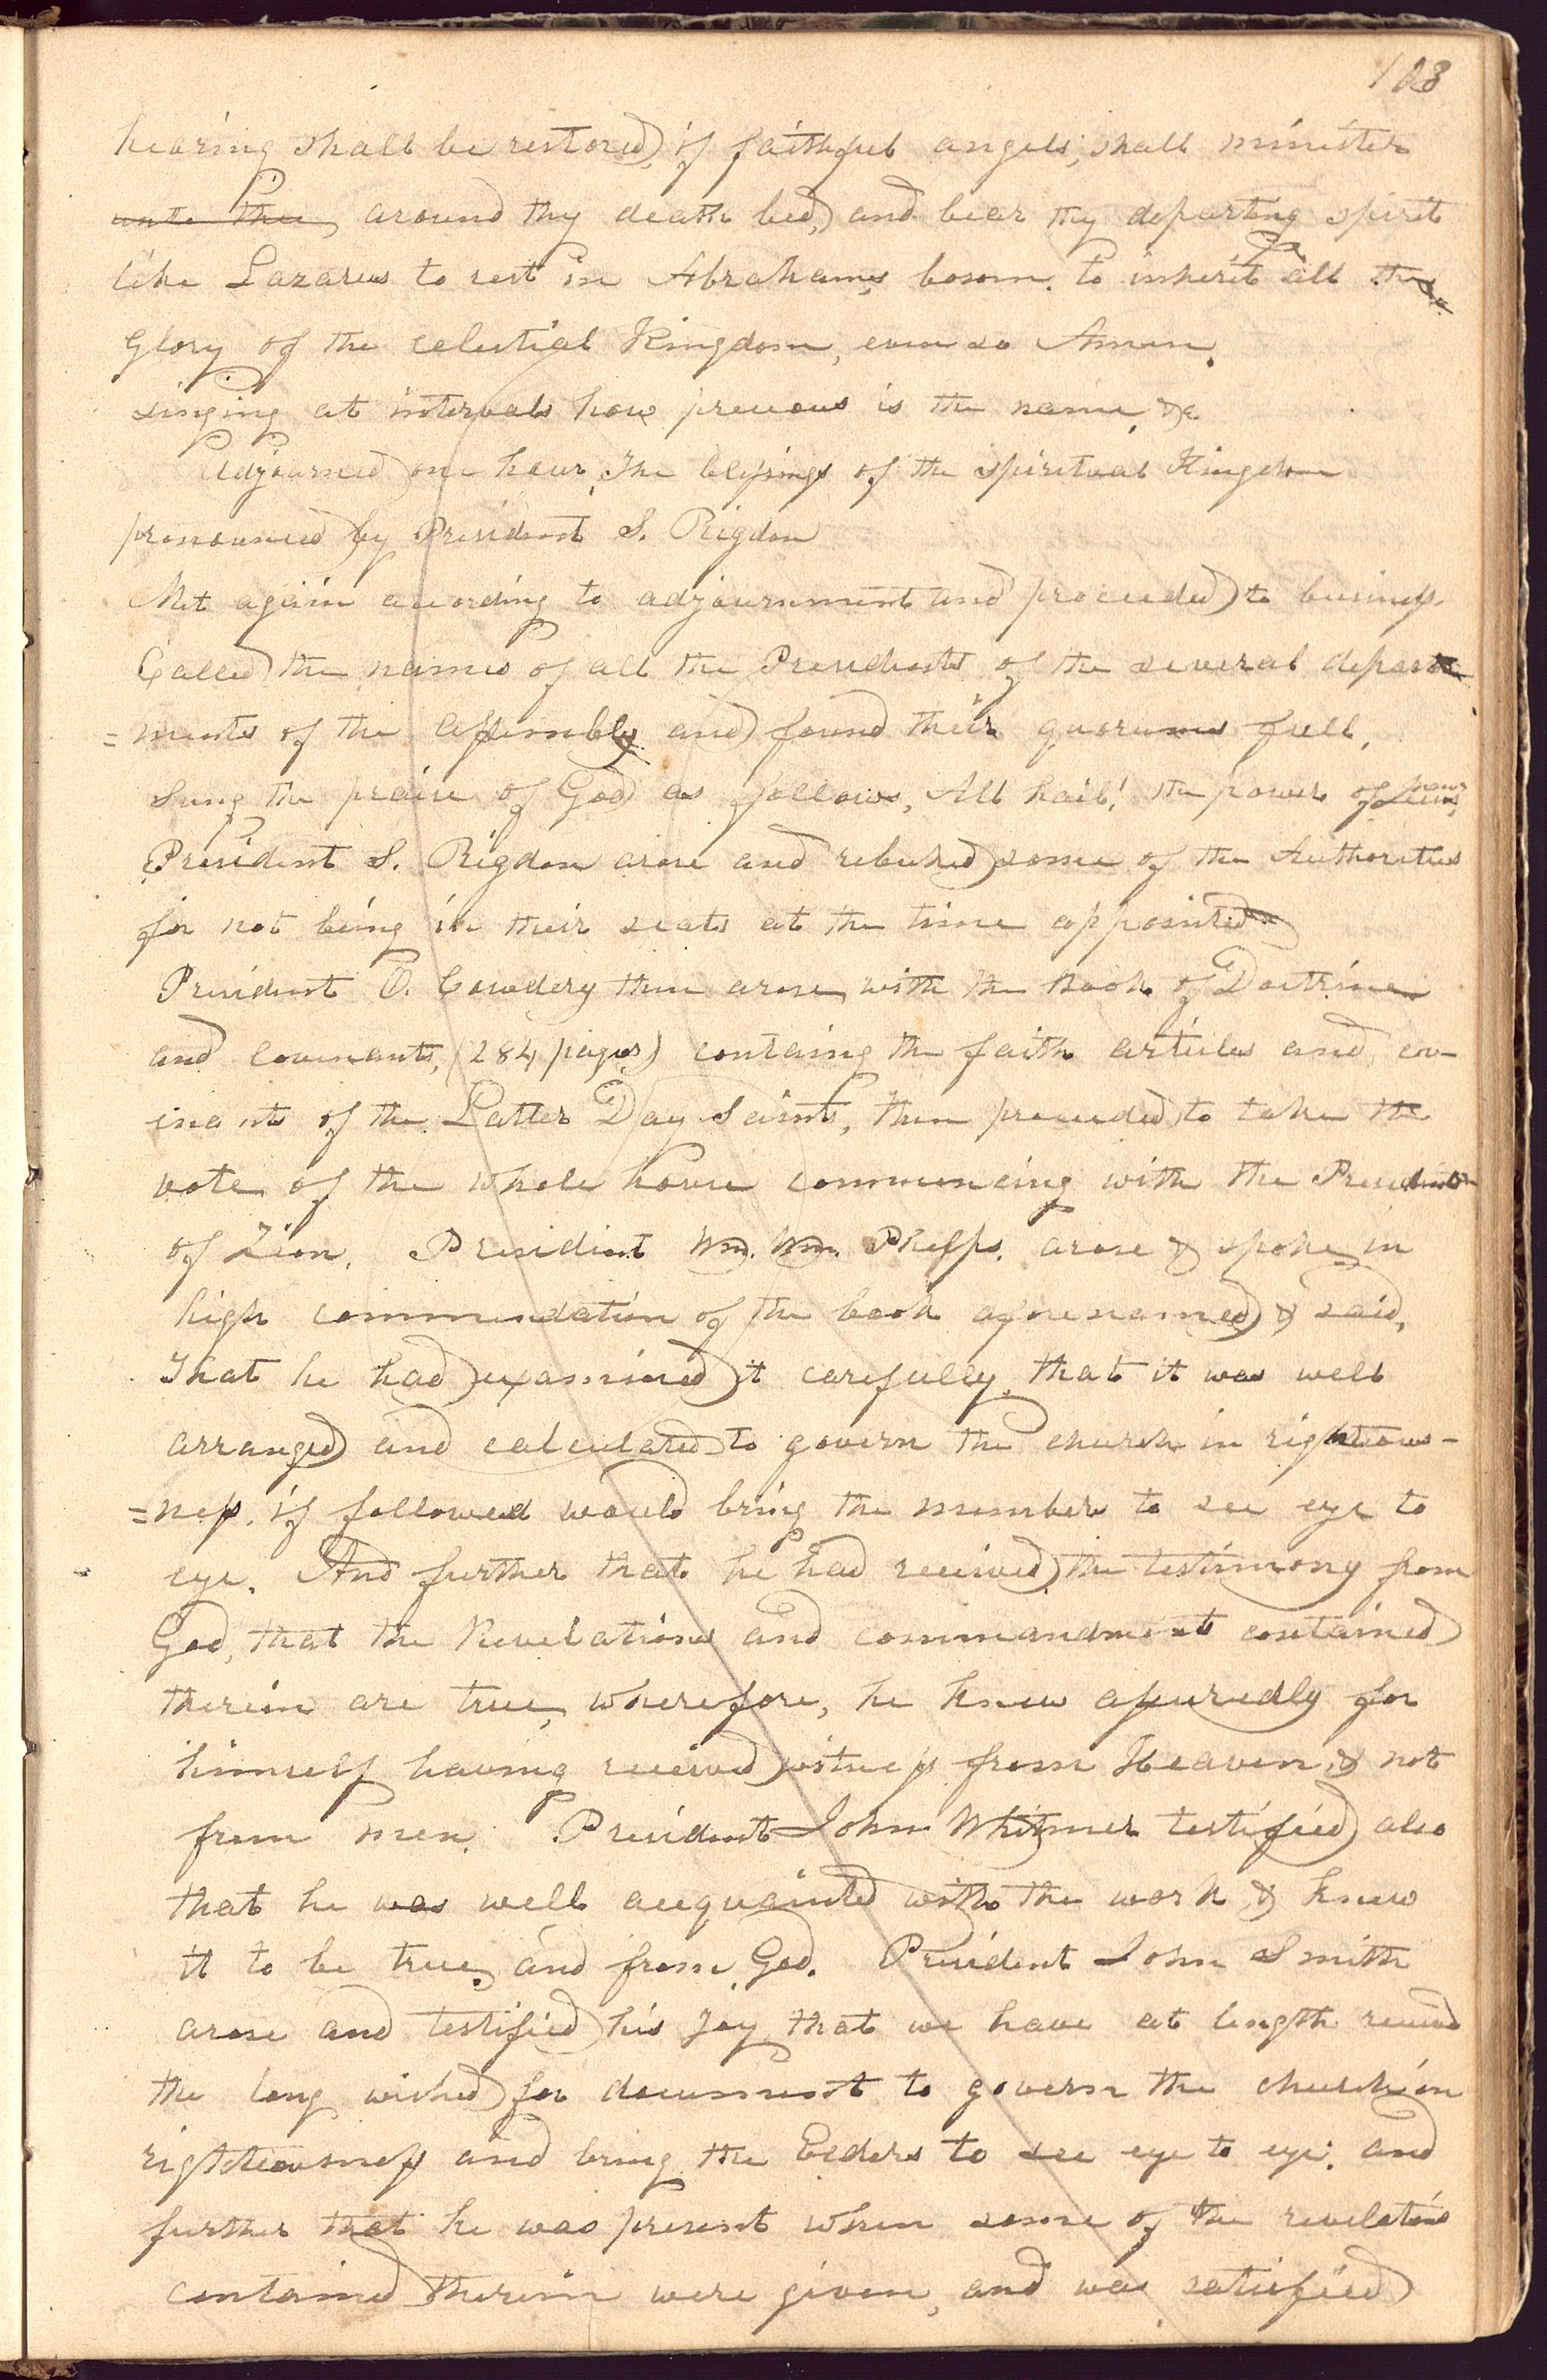 103
hearing shall be restored, if faithful angels, shall minister
unto thee, around thy death bed, and bear thy departing spirit
like Lazarus to rest in Abrahams bosom. to inherit all the
Glory of the celestial Kingdom, even so Amen.
singing at intervals how precious is the name, &c
Adjourned one hour, The blessings of the spiritual Kingdom
pronounced by President S. Rigdon
Met again according to adjournment and proceeded to business
Called the names of all the Presidents of the several depart
=ments of the assembly and found their quorums full,
Sung the praise of God as follows, All hail! the power of Jesus, name
President S. Rigdon arose and rebuked some of the Authorities
for not being in their seats at the time appointed
President O. Cowdery then arose, with the Book of Doctrine
and Covenants, (284 pages) containg the faith articles and cov-
enants of the Latter Day Saints, then proceeded to take the
vote of the whole house commencing with the Presidents
of Zion. President Wm. Wm. Phelps. arose & spoke in
high commendation of the book aforenamed, & said,
That he had examined it carefully, that it was well
arranged and calculated to govern the church in righteous-
=ness, if followed would bring the members to see eye to
eye. And further that he had received, the testimony from
God, that the Revelations and commandments contained
therein are true, wherefore, he knew assuredly for
himself having received witness from Heaven & not
from men. President John Whitmer testified also
that he was well acquainted with the work & knew
it to be true, and from God. President John Smith
arose and testified his Joy, that we have at length received
the long wished for document to govern the church in
righteousness and bring the Elders to see eye to eye. and
further that he was present when some of the revelations
contained therein were given, and was satisfied